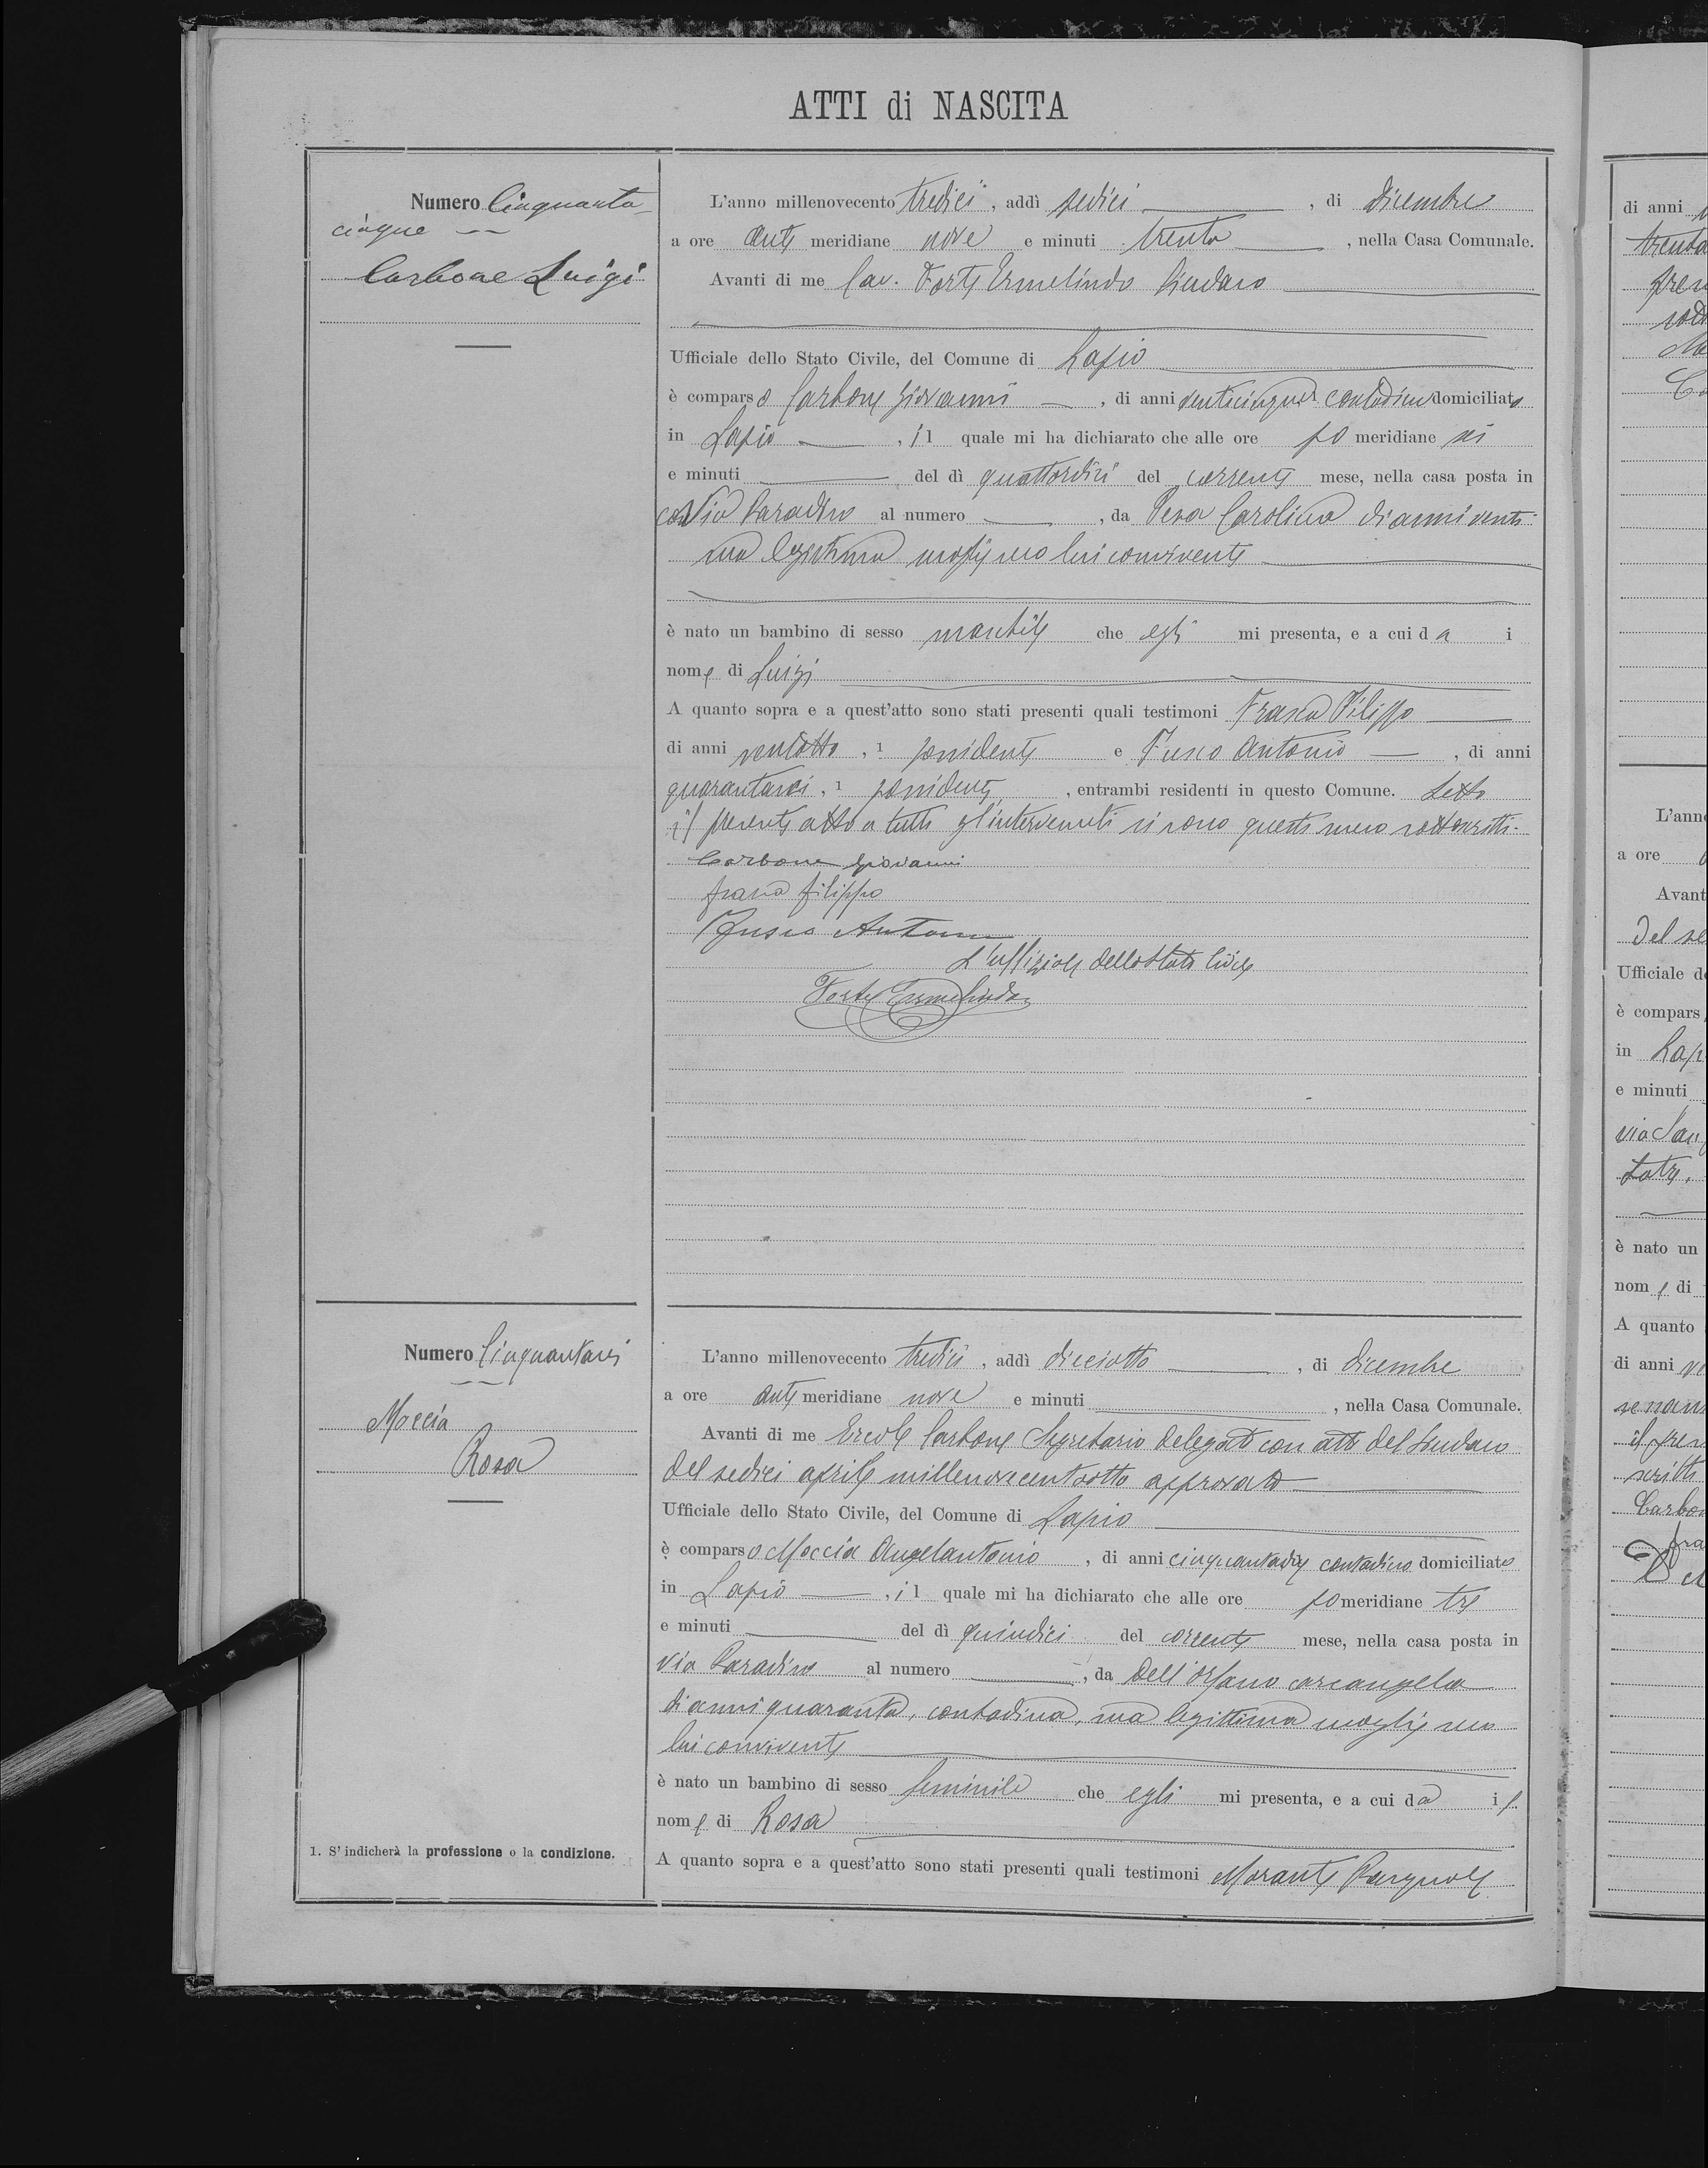 ATTI di NASCITA
Numero Cinquanta-
cinque
Carbone Luigi
L'anno millenovecento tredici, addì sedici, di dicembre
a ore anti meridiane nove e minuti trenta, nella Casa Comunale.
Avanti di me Cav. Forte Ermelindo Sindaco
Ufficiale dello Stato Civile, del Comune di Lapio
è comparso Carbone Giovanni, di anni venticinque contadino domiciliato
in Lapio, il quale mi ha dichiarato che alle ore po meridiane sei
e minuti del dì quattordici del corrente mese, nella casa posta in
Via Paradiso al numero, da Carolina di anni venti
sua legittima moglie seco lui convivente
è nato un bambino di sesso maschile che egli mi presenta, e a cui da i
nome di Luigi
A quanto sopra e a quest'atto sono stati presenti quali testimoni Frasca Filippo
di anni ventotto, 1 possidente e Fusco Antonio, di anni
quarantasei, 1 possidente, entrambi residenti in questo Comune. Letto
il presente atto a tutti gl'intervenuti si sono questi meco sottoscritti.
Carbone Giovanni
frasca filippo
Fusco Antonio
L'uffiziale dello Stato Civile
Forte Ermelindo
Numero Cinquantasei
Moccia
Rosa
L'anno millenovecento tredici, addì diciotto, di dicembre
a ore anti meridiane nove e minuti, nella Casa Comunale.
Avanti di me Ercole Carbone Segretario delegato con atto del Sindaco
del sedici aprile millenovecentootto approvato
Ufficiale dello Stato Civile, del Comune di Lapio
è comparso Moccia Angelantonio, di anni contadino domiciliato
in Lapio, il quale mi ha dichiarato che alle ore po meridiane tre
e minuti del dì quindici del corrente mese, nella casa posta in
via Paradiso al numero, da Dell'Orfano Arcangela
di anni quaranta, contadina, sua legittima moglie seco
lui convivente
è nato un bambino di sesso feminile che egli mi presenta, e a cui da il
nome di Rosa
A quanto sopra e a quest'atto sono stati presenti quali testimoni Morante Pasquale
1. S'indicherà la professione o la condizione.
di anni
trenta
L'anno
a ore
Avant
del se
Ufficiale d
è compars
in Lap
e minuti
via San
è nato un
nome di
A quanto
di anni
il pres
scritti
Carbo
fra